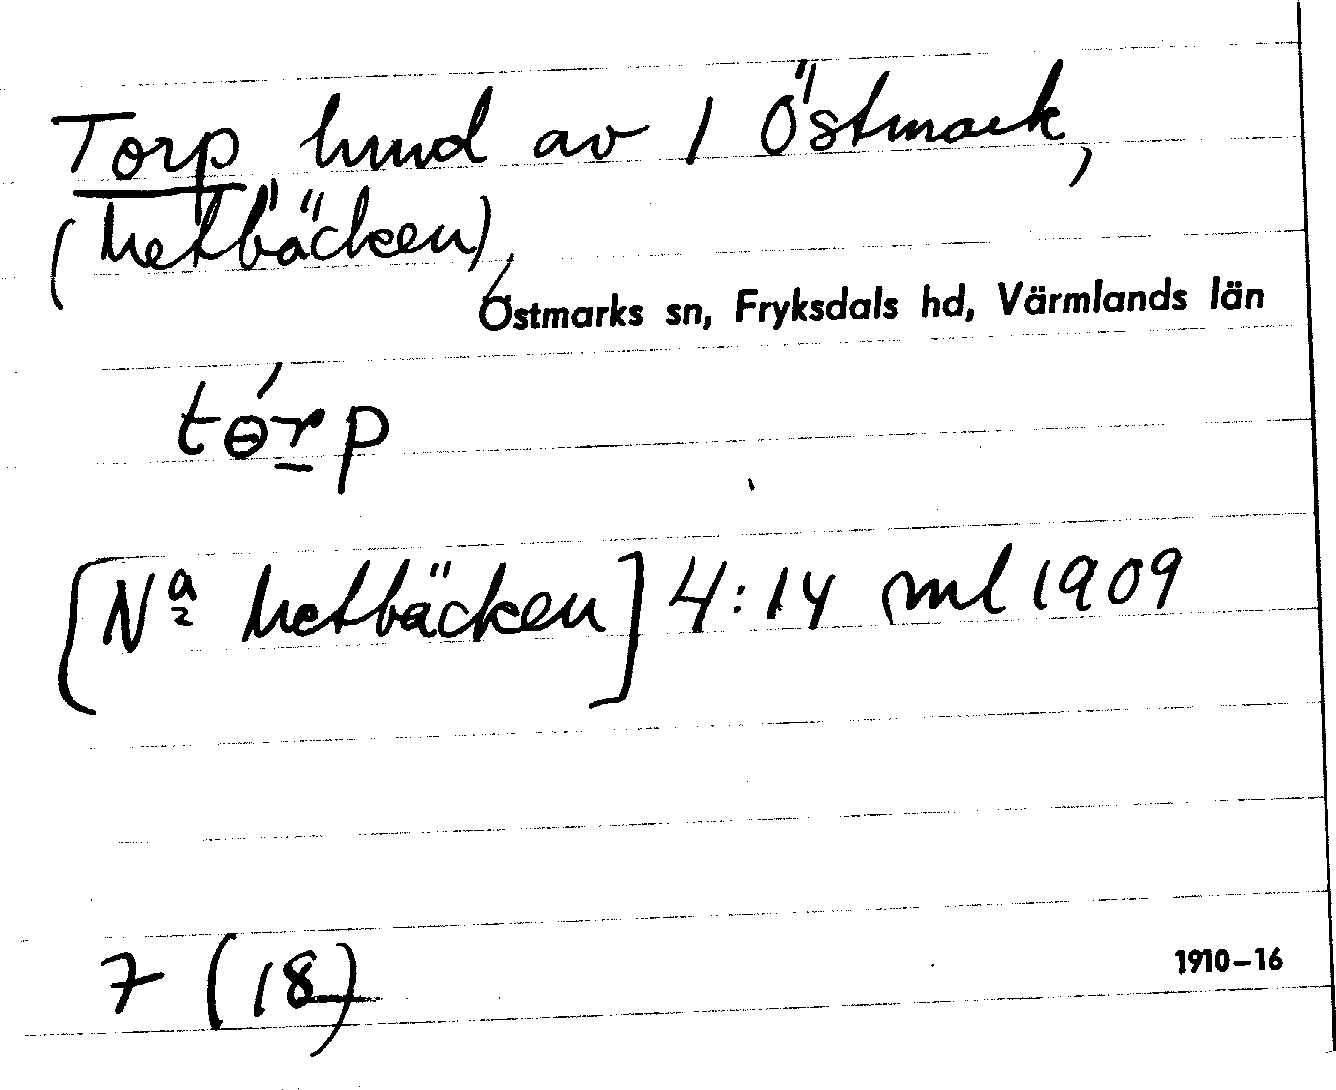 Torp, hmd av 1 Östmark,
(Metbäcken),
Östmarks sn, Fryksdals hd, Värmlands län
tɵ́r̲p
[Nᵃ Metbäcken] 4:14 ml 1909
7 (18)
1910–16